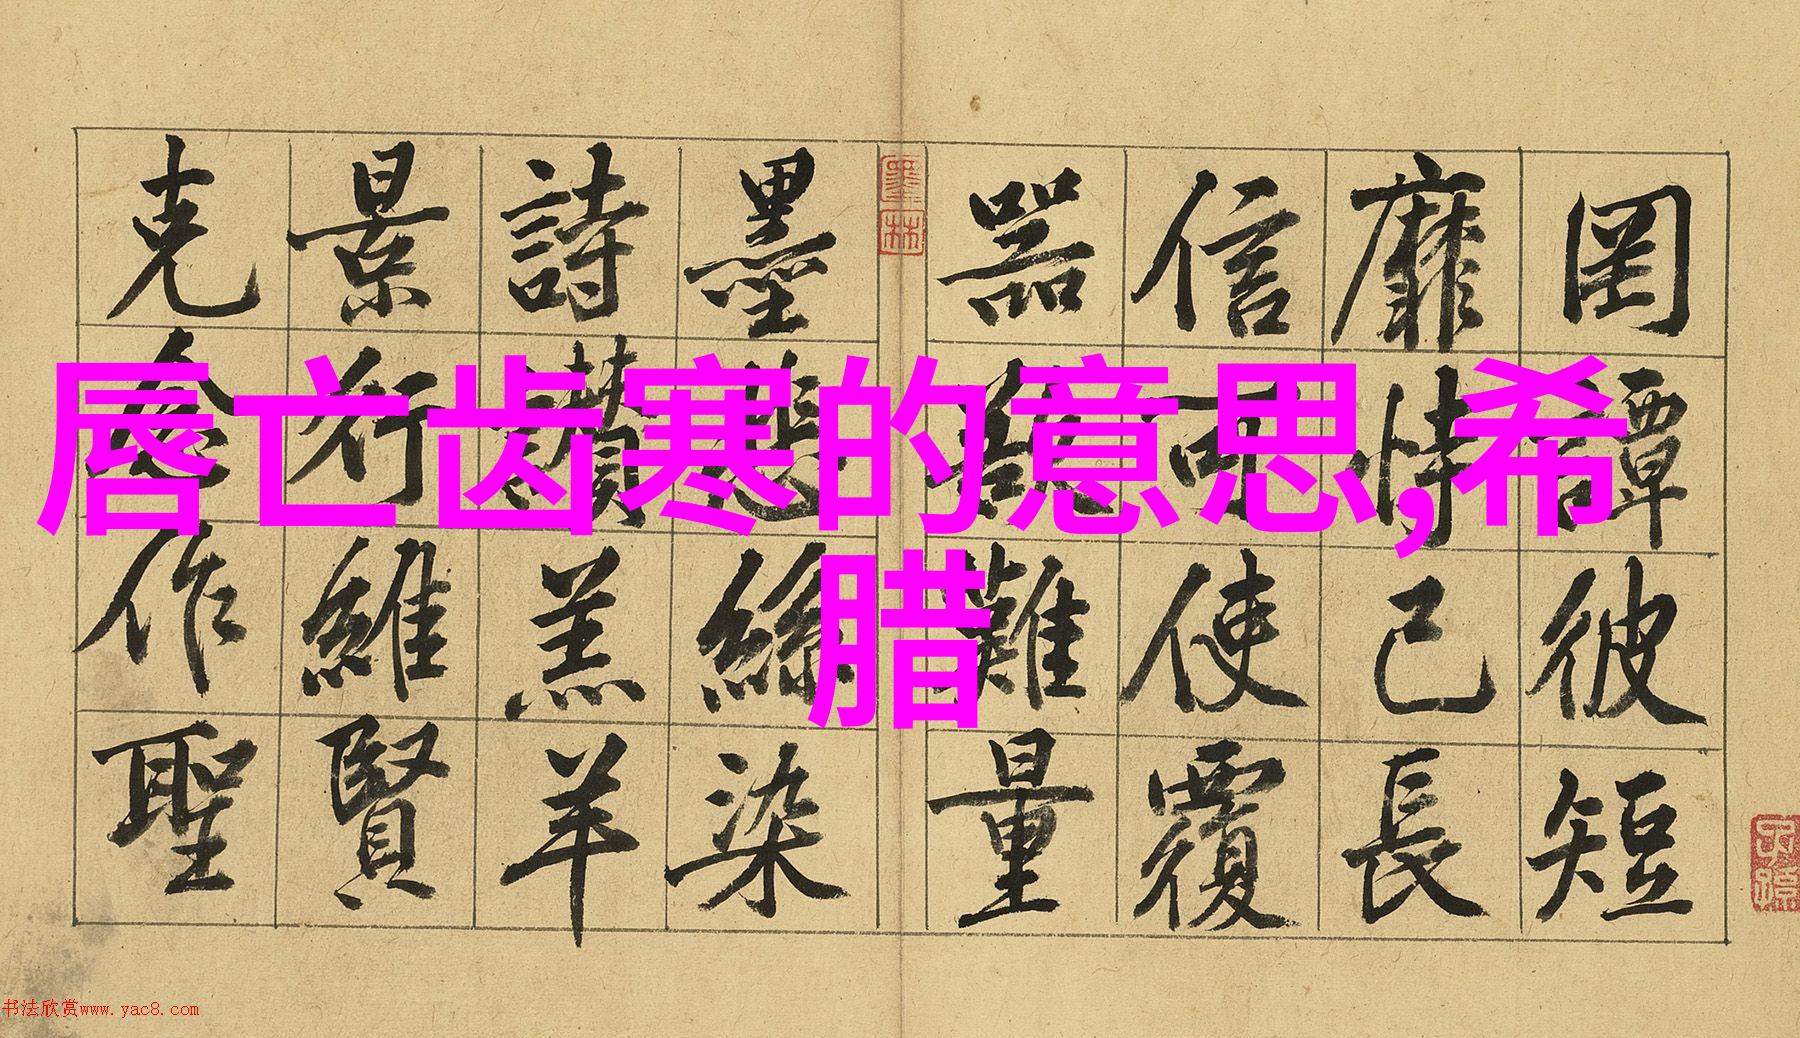 唇亡齿寒的意思,希
腊
罔譚彼短
靡恃己長
信可使覆
器欲難量
墨悲絲染
詩讚羔羊
景行維賢
克念作聖
墨林
书法欣赏www.yac8.com